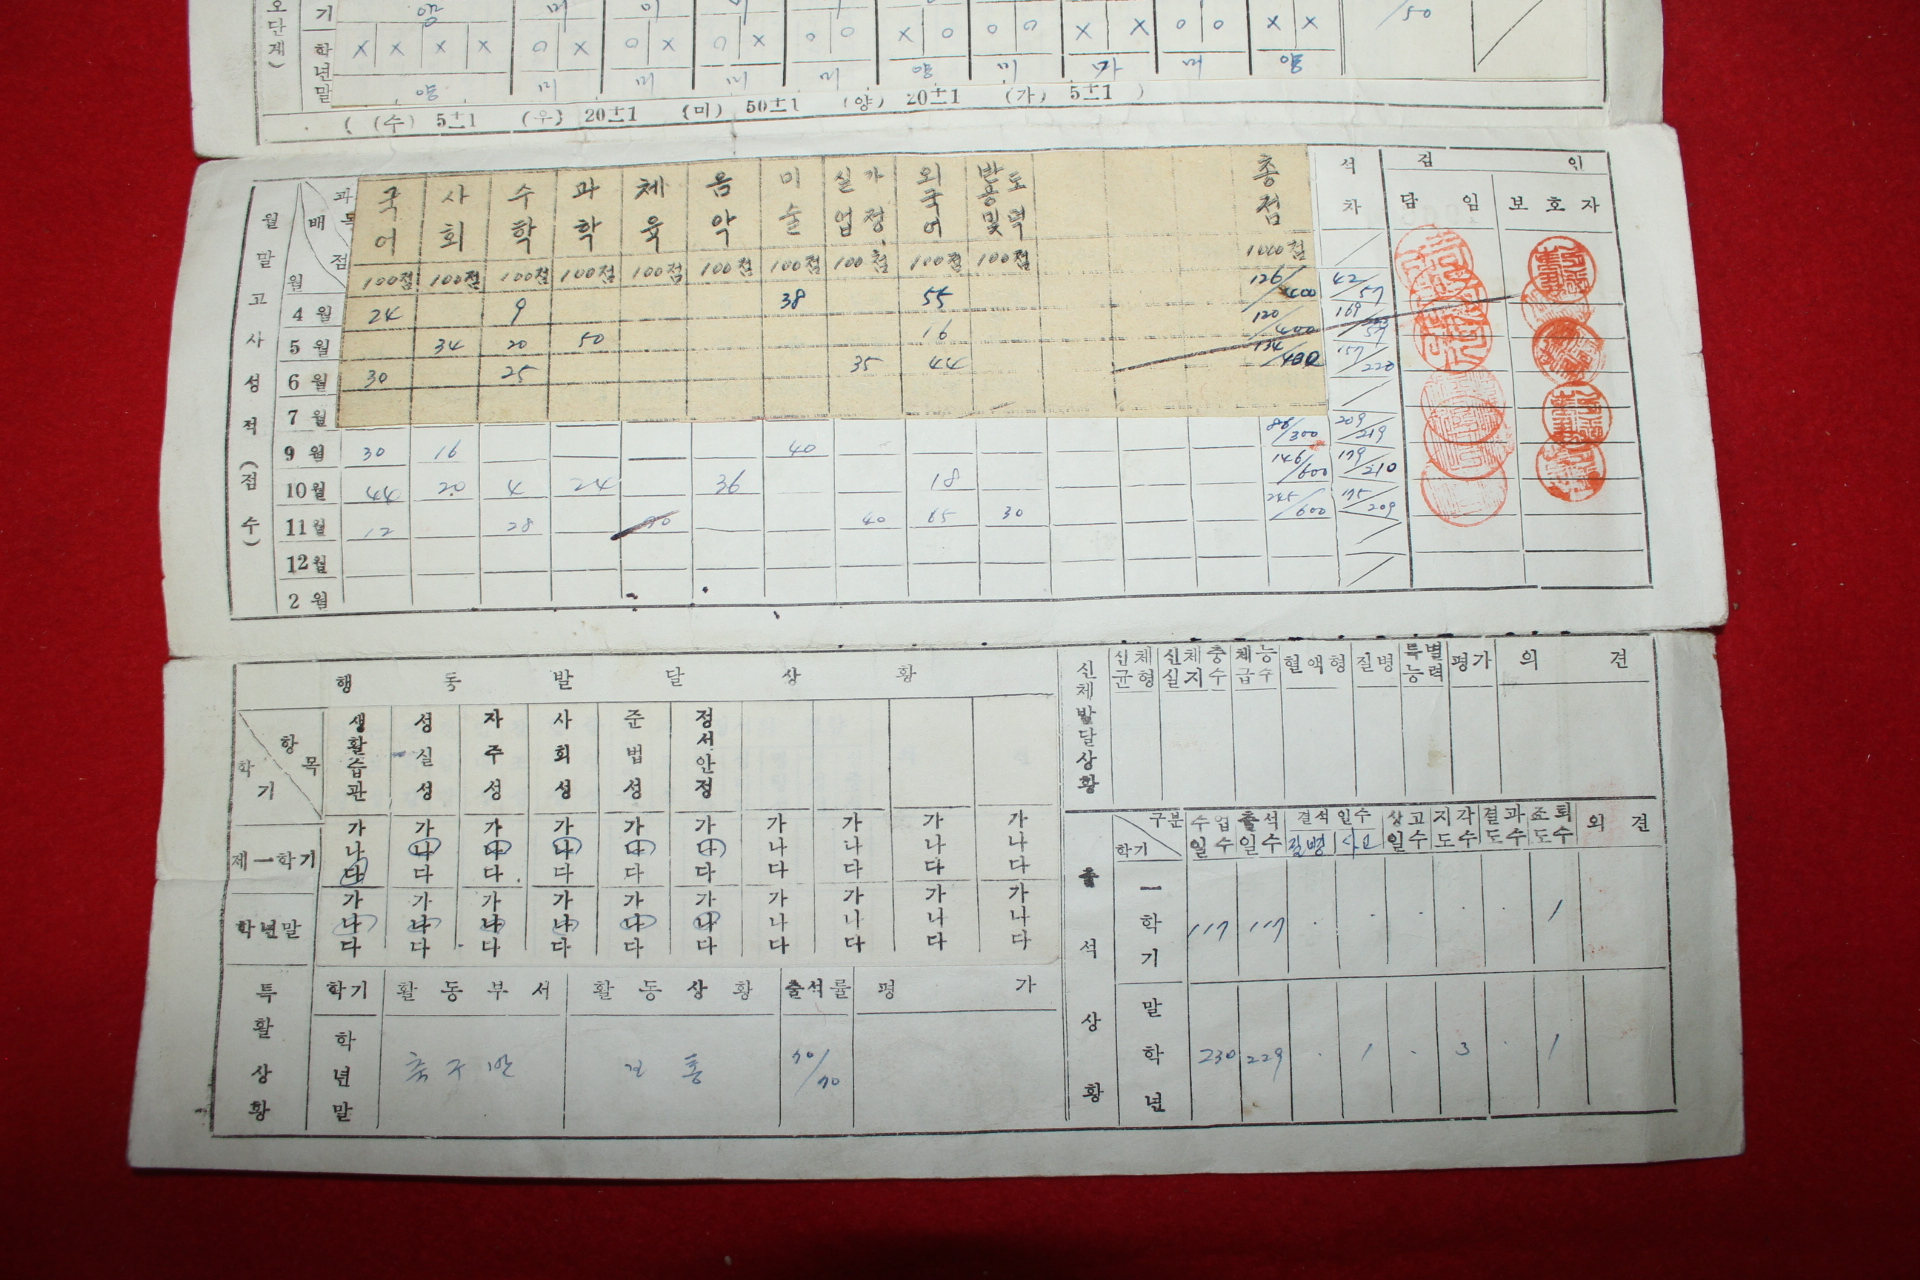 기 양 미 미 미
오단계) 학년말 × × × × ○ × ○ × ○ × ○ ○ × ○ ○ ○ × × ○ ○ × × /50
양 미 미 미 미 양 미 가 미 양
( (수) 5±1 (우) 20±1 (미) 50±1 (양) 20±1 (가) 5±1 )
월말고사성적(점수)
과목 배점 월 국어 사회 수학 과학 체육 음악 미술 실업 가정 외국어 반공및도덕 총점 석차 검인
담임 보호자
100점 100점 100점 100점 100점 100점 100점 100점 100점 100점 1000점
4월 24 9 38 55 126/400 42/57
5월 34 20 50 16 120/400 169/
6월 30 25 35 44 134/400 157/220
7월
9월 30 16 40 86/300 209/219
10월 44 20 4 24 36 18 146/600 179/210
11월 12 28 70 40 65 30 245/600 175/209
12월
2월
행동발달상황
항목 학기 생활습관 성실성 자주성 사회성 준법성 정서안정
제一학기 가나다 가나다 가나다 가나다 가나다 가나다 가나다 가나다 가나다 가나다
학년말 가나다 가나다 가나다 가나다 가나다 가나다 가나다 가나다 가나다 가나다
특활상황 학기 활동부서 활동상황 출석률 평가
학년말 축구반 보통 70/70
신체발달상황 신체균형 신체충실지수 체능급수 혈액형 질병 특별능력 평가 의견
출석상황 구분 학기 수업일수 출석일수 결석일수 질병 사고 상고일수 지각도수 결과도수 조퇴도수 의견
一학기 117 117 · · · · · 1
말학년 230 229 · 1 · 3 · 1